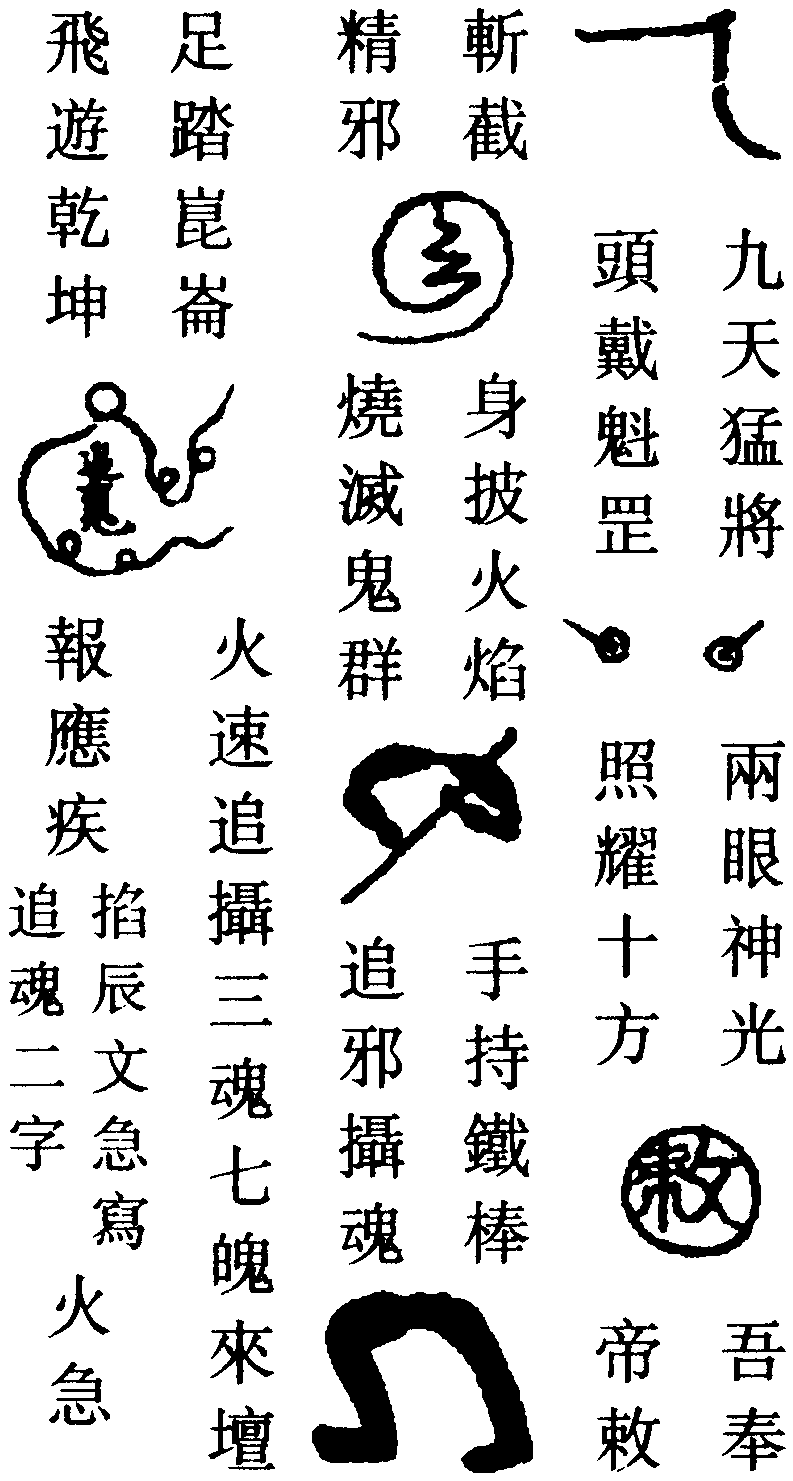 九天猛將
頭戴魁罡
兩眼神光
照耀十方
敕
吾奉
帝敕
斬截
精邪
身披火焰
燒滅鬼群
手持鐵棒
追邪攝魂
足踏崑崙
飛遊乾坤
火速追攝三魂七魄來壇
報應疾
掐辰文急寫
追魂二字
火急